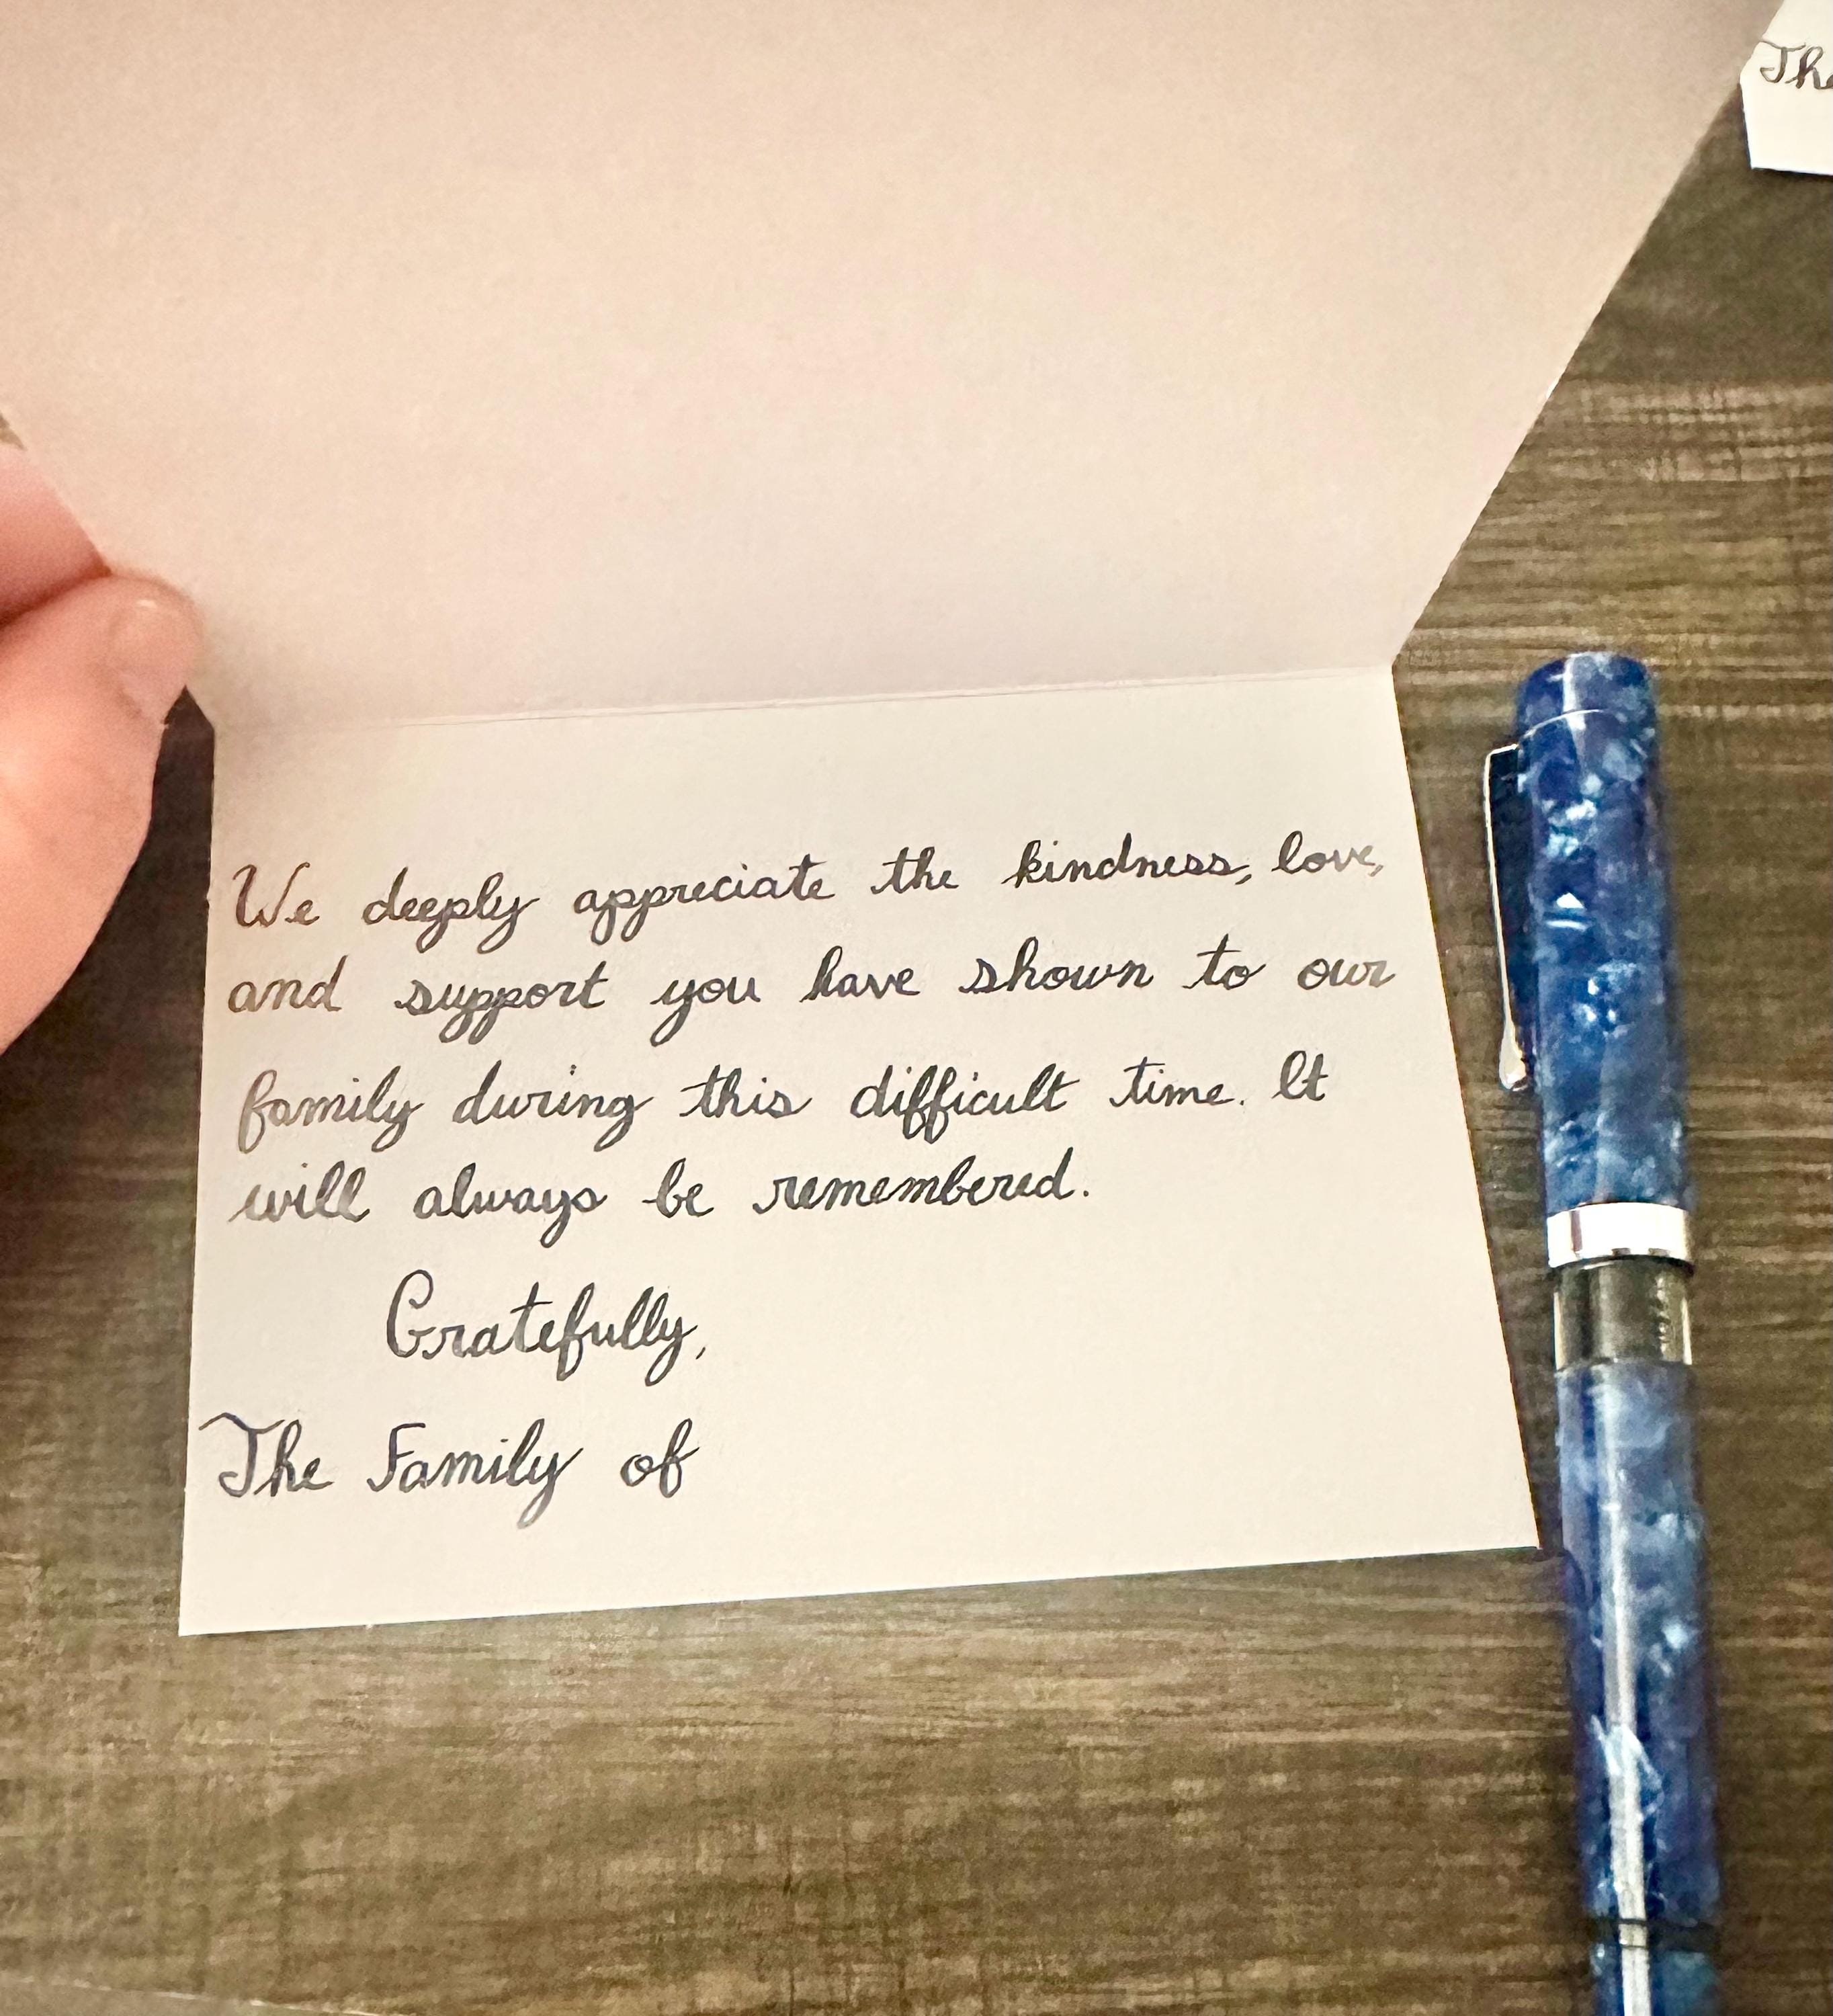 The
We deeply appreciate the kindness, love,
and support you have shown to our
family during this difficult time. It
will always be remembered.
Gratefully,
The Family of